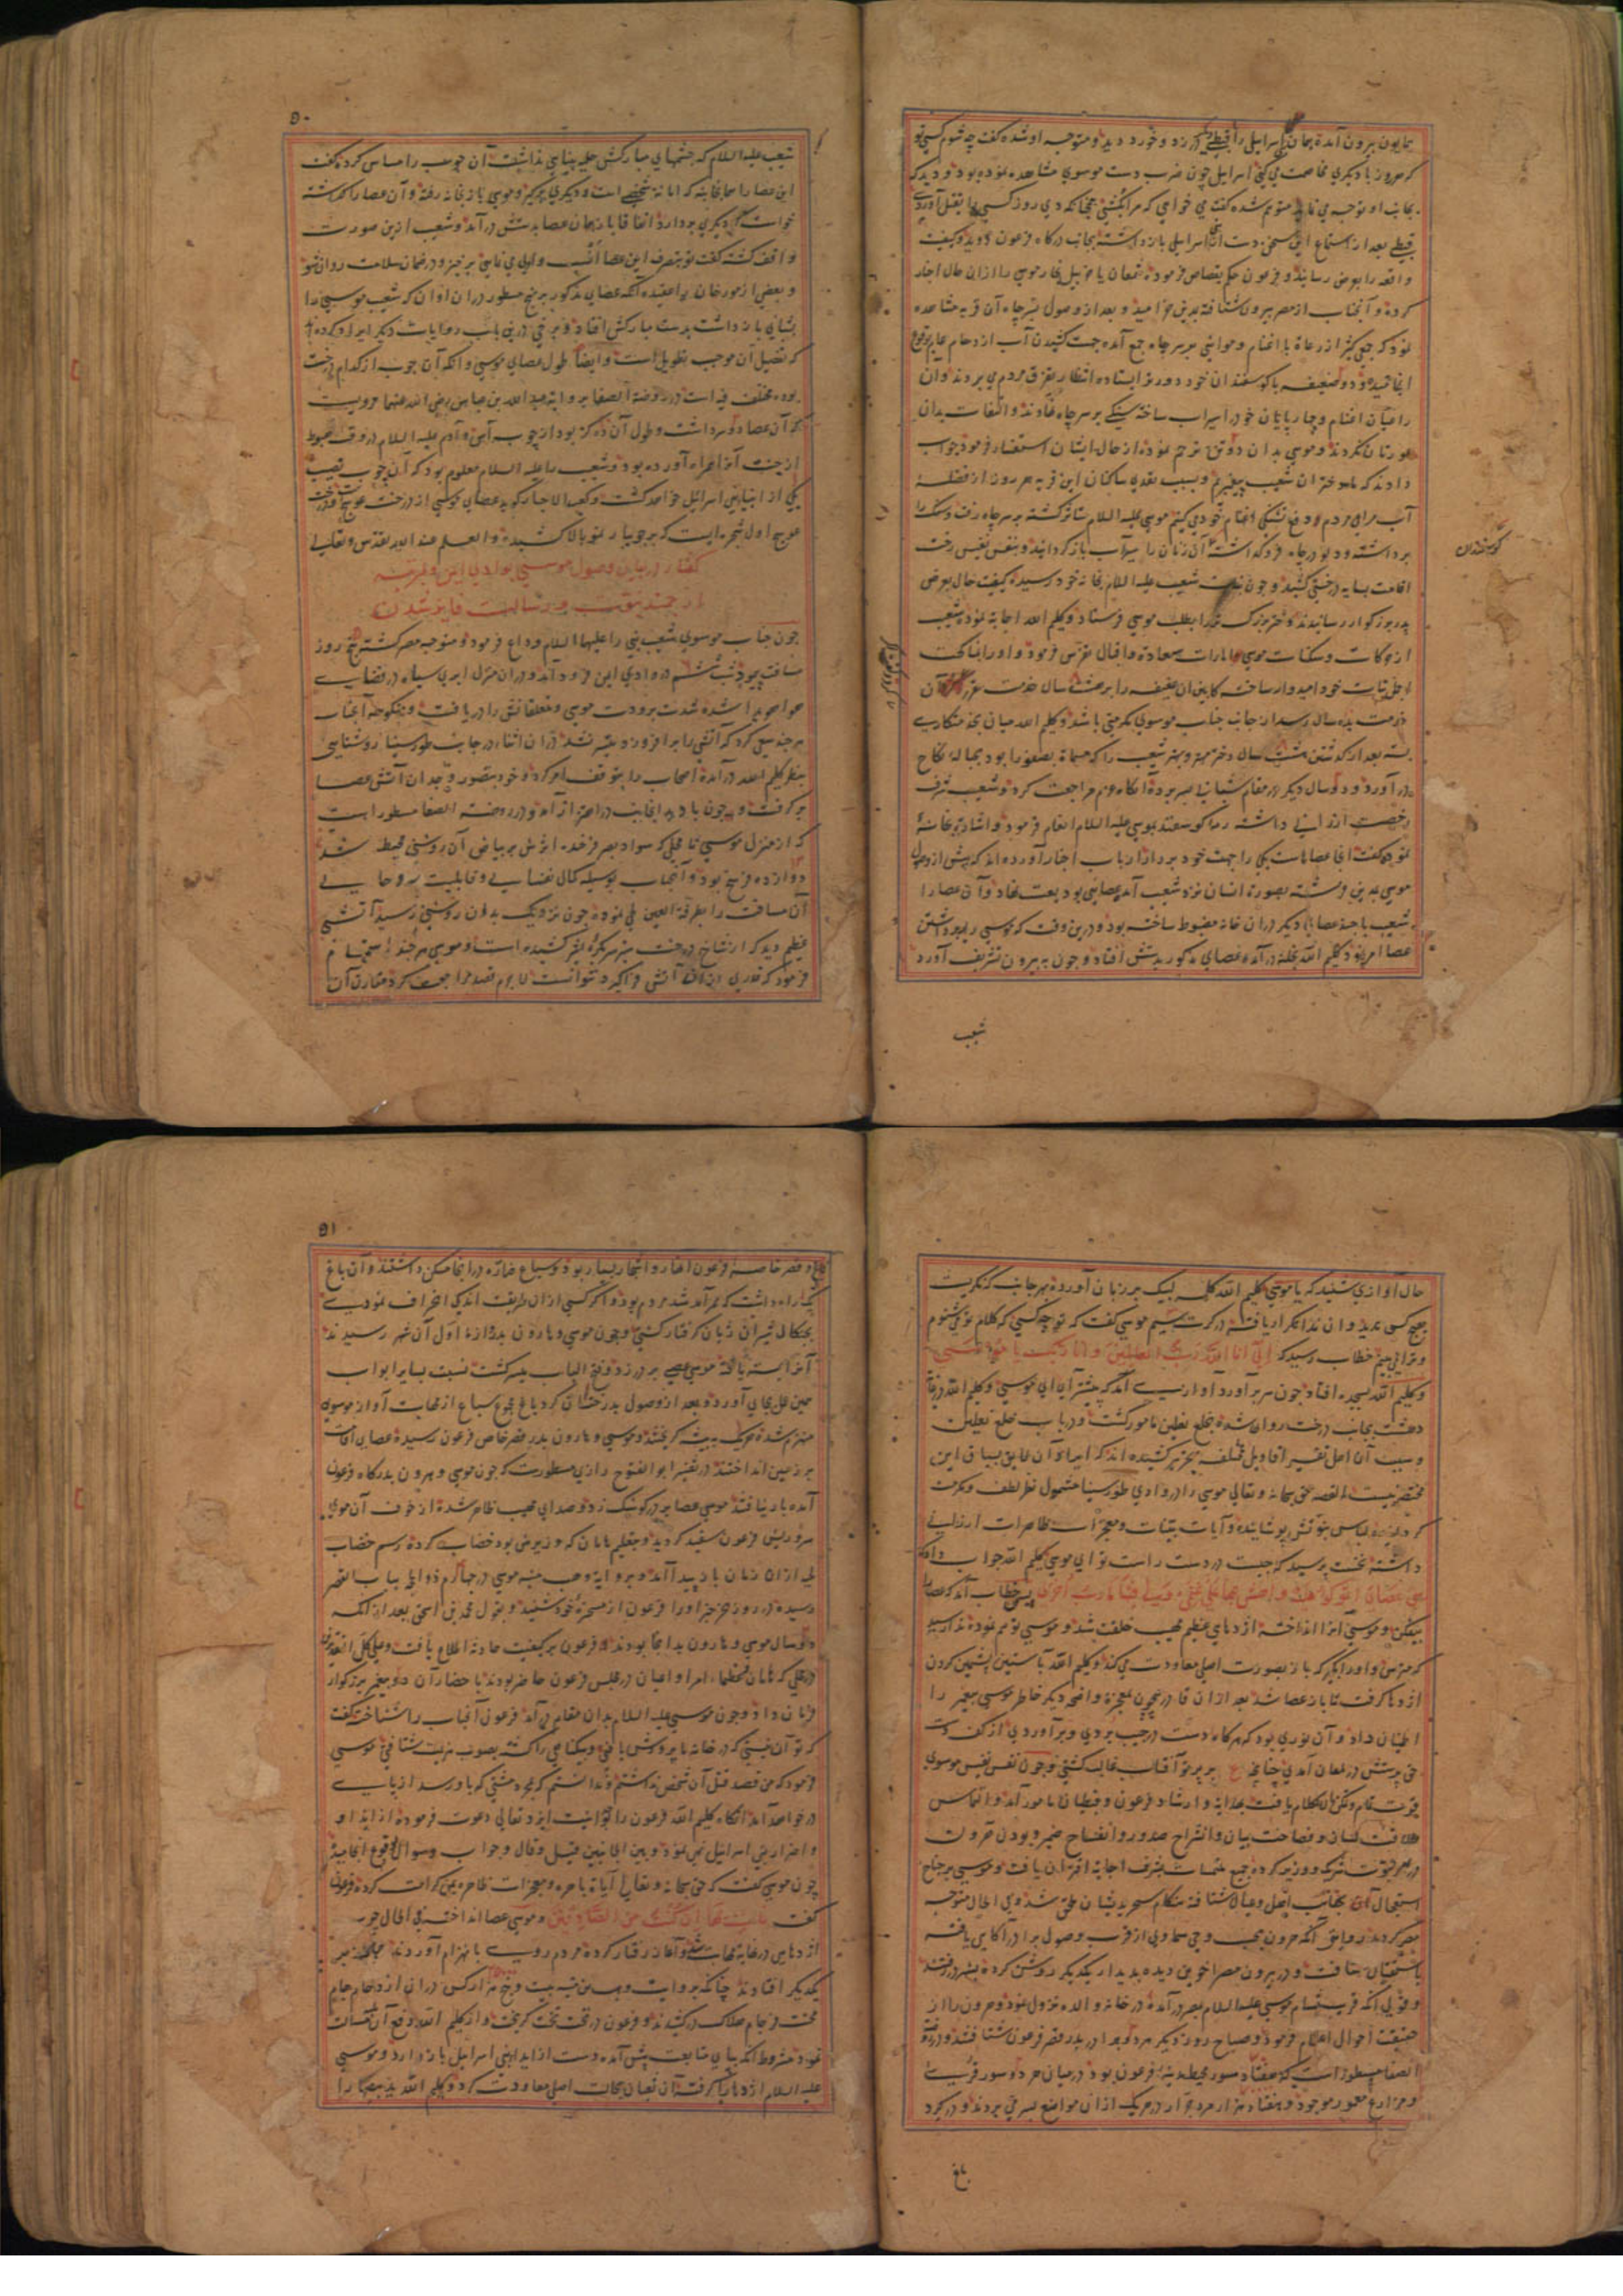 همایون بیرون آمده همان اسرائیلی را با قبطی در زد و خورد دید و متوجه او شده گفت چه شوم کسی تو
که هر روز با دیگری مخاصمت می کنی اسرائیلی چون ضرب دست موسوی مشاهده نموده بود و دید که
بجانب او توجه می نماید متوهم شده گفت می خواهی که مرا بکشی همچنانکه دی روز کسی را بقتل آوردی
قبطی بعد از استماع این سخن دست از اسرائیلی بازداشته بجانب درگاه فرعون دوید و کیفیت
واقعه را بعرض رسانید و فرعون حکم بقصاص فرموده شمعان یا حزبیل نجار موسی را از آن حال اخبار
کرده و آنجناب از مصر بیرون شتافته بمدین خرامید و بعد از وصول بسر چاه آن قریه مشاهده
نمود که جمعی کثیر از رعاة با اغنام و مواشی بر سر چاه جمع آمده جهت کشیدن آب ازدحام عام
انجامید و دو ضعیفه با گوسفندان خود دورتر ایستاده انتظار تفرق مردم می بردند و آن
راعیان اغنام و چارپایان خود را سیراب ساخته سنگی بر سر چاه نهادند و التفات بدان
عورتان نکردند و موسی بدان دو تن ترحم نموده از حال ایشان استفسار فرمود جواب
دادند که ما دختران شعیب پیغمبریم و بسبب تعدی ساکنان این قریه هر روز از فضله
آب مردم دفع تشنگی اغنام خود می کنیم موسی علیه السلام متاثر گشته بر سر چاه رفت و سنگ را
برداشته و دلو در چاه فرو گذاشته آن زنان را سیرآب بازگردانید و بنفس نفیس رخت
گوسفندان
اقامت بسایه درختی کشید و چون بنات شعیب علیه السلام بخانه خود رسیده کیفیت حال بعرض
پدر بزرگوار رسانیدند دختر بزرگ خود را بطلب موسی فرستاد و کلیم الله اجابه نموده شعیب
از حرکات و سکنات موسی امارات سعادة و اقبال تفرس فرمود و او را بمناکحت
خدمت بده سال رسد از جانب جناب موسوی مکرمتی باشد و کلیم الله میان بخدمتکاری
بسته بعد از گذشتن هشت سال دختر مهتر و بهتر شعیب را که مسماة بصفورا بود بحباله نکاح
درآورد و دو سال دیگر در مقام شبانی بسر برده آنگاه عزم مراجعت کرد و شعیب شرف
رخصت ارزانی داشته رمه گوسفند بموسی علیه السلام انعام فرمود و اشاده بخانه
نموده گفت آنجا عصاهاست یکی را جهت خود بردار ارباب اخبار آورده اند که پیش از وصول
موسی بمدین فرشته بصورة انسان نزد شعیب آمده عصایی بودیعت نهاد و آن عصا را
شعیب با چند عصاء دیگر در آن خانه مضبوط ساخته بود و در این وقت که موسی را ببرداشتن
عصا امر نمود کلیم الله بخانه درآمده عصای مذکور بدستش افتاد و چون به بیرون تشریف آورد
شعیب
۹۰
شعیب علیه السلام که چشمهای مبارکش حلیه بینایی نداشت آن چوب را مساس کرده گفت
این عصا را بجای بنه که امانة شخصی است و دیگری برگیر و موسی باز بخانه رفته و آن عصا را گذاشته
خواست که دیگری بردارد اتفاقا باز همان عصا بدستش درآمد و شعیب از این صورت
واقف گشته گفت تو بتصرف این عصا انسب و اولی می نمایی برخیز و در ضمان سلامت روان شو
و بعضی از مورخان را عقیده آنکه عصای مذکور بر نهج مسطور در آن اوان که شعیب موسی را
بشبانی بازداشت بدست مبارکش افتاد و برخی در این باب روایات دیگر ایراد کرده اند
که تفصیل آن موجب تطویل است و ایضا طول عصای موسی و آنکه آن چوب از کدام درخت
بوده مختلف فیه است در روضة الصفا بروایة عبد الله بن عباس رضی الله عنهما مرویست
که آن عصا دو سر داشت و طول آن ده گز بود از چوب آس و آدم علیه السلام در وقت هبوط
از جنت آنرا همراه آورده بود و شعیب را علیه السلام معلوم بود که آن چوب نصیب
یکی از انبیاء بنی اسرائیل خواهد گشت و کعب الاحبار گوید عصای موسی از درخت عوسج بود و درخت
عوسج اول شجره ایست که بر جویبار نمو بالا کشیده و العلم عند الله تقدس و تعالی
گفتار در بیان وصول موسی بوادی ایمن و بمرتبه
ارجمند نبوت و رسالت فایز شدن
چون جناب موسوی شعیب نبی را علیهما السلام وداع فرموده متوجه مصر گشته پنج روز
مسافت پیمود شب ششم در وادی ایمن فرود آمد و در آن منزل ابری سیاه در فضای
هوا هویدا شده شدت برودت موسی و متعلقانش را دریافت و منکوحه آنجناب
هر چند سعی کرد که آتشی را برافروزد میسر نشد در آن اثناء در جانب طور سینا روشنایی
بنظر کلیم الله درآمده اصحاب را بتوقف امر کرد و خود بتصور وجدان آتش عصا
برگرفت و چون باد بدانجانب در اهتزاز آمد و در روضة الصفا مسطور است
که از منزل موسی تا محلی که سواد بصر فرخنده اثرش بر بیاض آن روشنی محیط شد
دوازده فرسخ بود و آنجناب بوسیله کمال نفسانی و قابلیت روحانی
آن مسافت را بطرفة العین طی نموده چون نزدیک بدان روشنی رسید آتشی
عظیم دید که از شاخ درخت سبز سر بکره اثیر کشیده است و موسی هر چند اهتمام
فرمود که قدری از آن آتش فراگیرد نتوانست لاجرم قصد مراجعت کرد مقارن آن
حال آوازی شنید که یا موسی کلیم الله کلمه لبیک بر زبان آورده بهر جانب که نگریست
هیچ کس ندید و آن ندا تکرار یافته در کرت سیم موسی گفت که تو چه کسی که کلام تو می شنوم
و ترا نمی بینم خطاب رسید که انی انا الله رب العالمین وانا ربک یا موسی
و کلیم الله بسجده افتاد چون سر برآورد آواز رسید آمد که پیشتر آی ای موسی و کلیم الله در غایة
دهشت بجانب درخت روان شده بخلع نعلین مامور گشت و در باب خلع نعلین
و سبب آن اهل تفسیر اقاویل مختلفه بحیز تحریر کشیده اند که ایراد آن لایق بسیاق این
مختصر نیست القصه حق سبحانه و تعالی موسی را در وادی طور سینا مشمول نظر لطف و مکرمت
گردانیده لباس نبوتش پوشانیده و آیات بینات و معجزات ظاهرات ارزانی
داشته نخست پرسید که چیست در دست راست تو ای موسی کلیم الله جواب داد که
هی عصای اتوکؤا علیها و اهش بها علی غنمی ولی فیها مآرب اخری پس خطاب آمد که عصا را
بیفکن و موسی آنرا انداخته اژدهای عظیم مهیب خلقت شد و موسی توهم نموده ندا رسید
که مترس و او را بگیر که باز بصورت اصلی معاودت می کند و کلیم الله بآستین پشمین گردن
اژدها گرفت تا باز عصا شد بعد از آن قادر بیچون بمعجزه واضحه دیگر خاطر موسی پیغمبر را
اطمینان داد و آن نوری بود که هرگاه دست در جیب بردی و برآوردی از کف دست
حق پرستش در لمعان آمدی چنانچه بر پرتو آفتاب غالب گشتی و چون نفس نفیس موسوی
قوت تمام و تمکن لاکلام یافت بهدایة و ارشاد فرعون و قبطیان مامور آمد و التماس
طلاقت لسان و فصاحت بیان و انشراح صدور و انفساح ضمیر و بودن هرون
در امر نبوت شریک و وزیر کرده جمیع ملتمسات بشرف اجابة اقتران یافت و موسی بر جناح
استعجال بجانب اهل و عیال شتافته هنگام سحر بدیشان ملحق شد و فی الحال متوجه
مصر گردید بروایتی آنکه هرون بموجب وحی سماوی از قرب وصول برادر آگاهی یافته
باستقبال شتافت و در بیرون مصر اخوین دیده بدیدار یکدیگر روشن کرده بشهر درآمدند
و قولی آنکه قریب بشام موسی علیه السلام بمصر درآمده در خانه والده نزول نمود و هرون را از
حقیقت احوال اعلام فرمود و صباح روز دیگر هر دو برادر بدر قصر فرعون شتافتند و در روضة
الصفا مسطور است که هفتاد سور محیط مدینه فرعون بود و در میان هر دو سور قریه
و مزارع معمور موجود و هفتاد هزار مرد جرار در هر یک از آن مواضع بسر می بردند و در گرد
باغ
۹۱
باغ و قصر خاصه فرعون انهار و اشجار بسیار بود و سباع ضاره در آنجا مسکن داشتند و آن باغ
یک راه داشت که ممر آمد شد مردم بود و اگر کسی از آن طریقت اندک انحراف نمودی
بچنگال شیران ژیان گرفتار گشتی و چون موسی و هارون بدروازه اول آن شهر رسیدند
آنرا بسته یافته موسی عصا بر در زد و فتح الباب میسر گشت نسبت بسایر ابواب
همین عمل بجای آورد و بعد از وصول بدرختان گرد باغ مجموع سباع از مهابت آواز موسوی
منهزم شده هر یک به بیشه گریختند و موسی و هارون بدر قصر خاص فرعون رسیده عصای اقامت
بر زمین انداختند در تفسیر ابو الفتوح رازی مسطورست که چون موسی و هرون بدرگاه فرعون
آمده بار نیافتند موسی عصا بر در کوشک زد و صدای مهیب ظاهر شده از خوف آن موی
سر و ریش فرعون سفید گردید و بتعلیم هامان که وزیرش بود خضاب کرده رسم خضاب
لحی از آن زمان بادید آمد و بروایة وهب بن منبه موسی در چهارم ذو الحجه بباب القصر
رسیده در روز دیگر او را فرعون از مسخره خود شنید و بقول محمد بن اسحق بعد از آنکه
دو سال موسی و هارون بدانجا بودند فرعون بر کیفیت حادثه اطلاع یافت و علی کل التقدیرین
در محلی که هامان و عظماء امرا و اعیان در مجلس فرعون حاضر بودند باحضار آن دو پیغمبر بزرگوار
فرمان داد و چون موسی علیه السلام بدان مقام درآمد فرعون آنجناب را شناخته گفت
که تو آن نیستی که در خانه ما پرورش یافتی و بیگناهی را کشته بصوب هزیمت شتافتی موسی
فرمود که من قصد قتل آن شخص نداشتم و ندانستم که بمجرد مشتی که باو رسد از پای
در خواهد آمد آنگاه کلیم الله فرعون را بوحدانیت ایزد تعالی دعوت فرموده از ایذا و
و اضرار بنی اسرائیل نهی نمود و بین الجانبین قیل و قال و جواب و سوال بوقوع انجامید
چون موسی گفت که حق سبحانه و تعالی آیاة باهره و معجزات ظاهره بمن کرامت کرده فرعون
گفت فات بها ان کنت من الصادقین و موسی عصا انداخته فی الحال چوب
اژدهایی در غایة مهابت شد و آغاز رفتار کرده مردم روی بانهزام آوردند
یکدیگر افتادند چنانکه بروایت وهب بن منبه بیست و پنج هزار کس در آن ازدحام جام
محنت فرجام هلاک درکشیدند و فرعون در تحت تخت گریخت و از کلیم الله دفع آن مسالت
نمود مشروط آنکه بپای متابعت پیش آمده دست از ایذاء بنی اسرائیل بازدارد و موسی
علیه السلام اژدها را گرفته آن ثعبان بحالت اصلی معاودت کرد و کلیم الله ید بیضا را